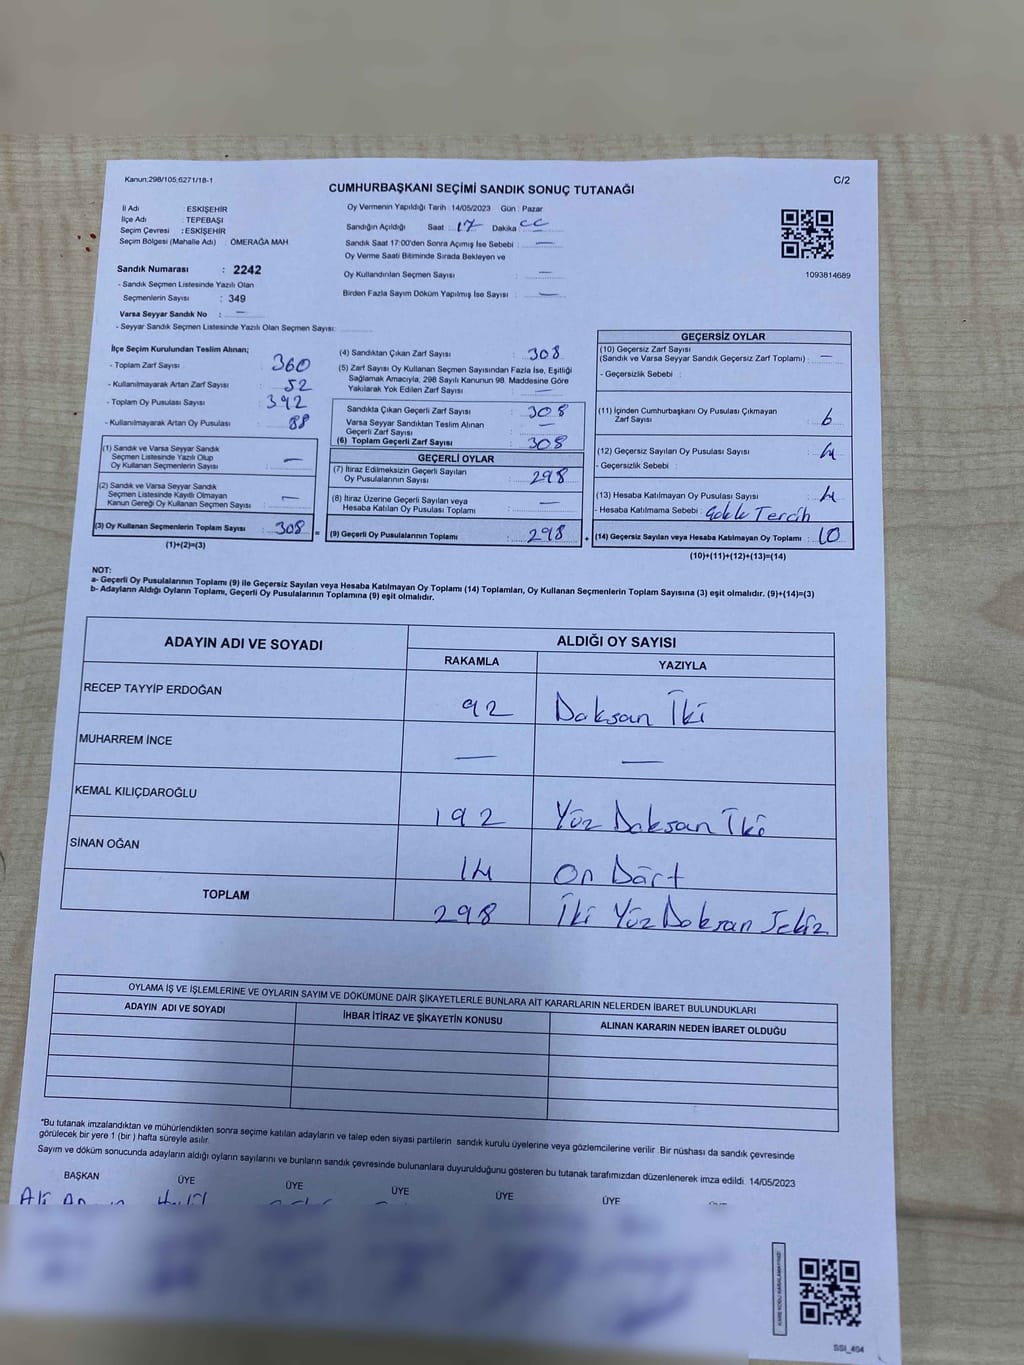 Kanun;298/105;6271/18-1
C/2
CUMHURBAŞKANI SEÇİMİ SANDIK SONUÇ TUTANAĞI
İl Adı : ESKİŞEHİR
İlçe Adı : TEPEBAŞI
Seçim Çevresi : ESKİŞEHİR
Seçim Bölgesi (Mahalle Adı) : ÖMERAĞA MAH
Oy Vermenin Yapıldığı Tarih : 14/05/2023 Gün : Pazar
Sandığın Açıldığı Saat : 17 Dakika :
Sandık Saat 17:00'den Sonra Açımış İse Sebebi : —
Oy Verme Saati Bitiminde Sırada Bekleyen ve
Oy Kullandırılan Seçmen Sayısı : —
Birden Fazla Sayım Döküm Yapılmış İse Sayısı : —
1093814689
Sandık Numarası : 2242
- Sandık Seçmen Listesinde Yazılı Olan
Seçmenlerin Sayısı : 349
Varsa Seyyar Sandık No : —
- Seyyar Sandık Seçmen Listesinde Yazılı Olan Seçmen Sayısı:
İlçe Seçim Kurulundan Teslim Alınan;
- Toplam Zarf Sayısı : 360
- Kullanılmayarak Artan Zarf Sayısı : 52
- Toplam Oy Pusulası Sayısı : 392
- Kullanılmayarak Artan Oy Pusulası : 88
(1) Sandık ve Varsa Seyyar Sandık
Seçmen Listesinde Yazılı Olup
Oy Kullanan Seçmenlerin Sayısı : —
(2) Sandık ve Varsa Seyyar Sandık
Seçmen Listesinde Kayıtlı Olmayan
Kanun Gereği Oy Kullanan Seçmen Sayısı : —
(3) Oy Kullanan Seçmenlerin Toplam Sayısı : 308 =
(1)+(2)=(3)
(4) Sandıktan Çıkan Zarf Sayısı : 308
(5) Zarf Sayısı Oy Kullanan Seçmen Sayısından Fazla İse, Eşitliği
Sağlamak Amacıyla, 298 Sayılı Kanunun 98. Maddesine Göre
Yakılarak Yok Edilen Zarf Sayısı : —
Sandıkta Çıkan Geçerli Zarf Sayısı : 308
Varsa Seyyar Sandıktan Teslim Alınan
Geçerli Zarf Sayısı : —
(6) Toplam Geçerli Zarf Sayısı : 308
GEÇERLİ OYLAR
(7) İtiraz Edilmeksizin Geçerli Sayılan
Oy Pusulalarının Sayısı : 298
(8) İtiraz Üzerine Geçerli Sayılan veya
Hesaba Katılan Oy Pusulası Toplamı : —
(9) Geçerli Oy Pusulalarının Toplamı : 298 +
GEÇERSİZ OYLAR
(10) Geçersiz Zarf Sayısı
(Sandık ve Varsa Seyyar Sandık Geçersiz Zarf Toplamı) : —
- Geçersizlik Sebebi :
(11) İçinden Cumhurbaşkanı Oy Pusulası Çıkmayan
Zarf Sayısı : 6
(12) Geçersiz Sayılan Oy Pusulası Sayısı : 4
- Geçersizlik Sebebi :
(13) Hesaba Katılmayan Oy Pusulası Sayısı : 4
- Hesaba Katılmama Sebebi : Tercih
(14) Geçersiz Sayılan veya Hesaba Katılmayan Oy Toplamı : 10
(10)+(11)+(12)+(13)=(14)
NOT:
a- Geçerli Oy Pusulalarının Toplamı (9) ile Geçersiz Sayılan veya Hesaba Katılmayan Oy Toplamı (14) Toplamları, Oy Kullanan Seçmenlerin Toplam Sayısına (3) eşit olmalıdır. (9)+(14)=(3)
b- Adayların Aldığı Oyların Toplamı, Geçerli Oy Pusulalarının Toplamına (9) eşit olmalıdır.
ADAYIN ADI VE SOYADI ALDIĞI OY SAYISI
RAKAMLA YAZIYLA
RECEP TAYYİP ERDOĞAN 92 Doksan İki
MUHARREM İNCE — —
KEMAL KILIÇDAROĞLU 192 Yüz Doksan İki
SİNAN OĞAN 14 On Dört
TOPLAM 298 İki Yüz Doksan Sekiz
OYLAMA İŞ VE İŞLEMLERİNE VE OYLARIN SAYIM VE DÖKÜMÜNE DAİR ŞİKAYETLERLE BUNLARA AİT KARARLARIN NELERDEN İBARET BULUNDUKLARI
ADAYIN ADI VE SOYADI İHBAR İTİRAZ VE ŞİKAYETİN KONUSU ALINAN KARARIN NEDEN İBARET OLDUĞU
*Bu tutanak imzalandıktan ve mühürlendikten sonra seçime katılan adayların ve talep eden siyasi partilerin sandık kurulu üyelerine veya gözlemcilerine verilir. Bir nüshası da sandık çevresinde
görülecek bir yere 1 (bir ) hafta süreyle asılır.
Sayım ve döküm sonucunda adayların aldığı oyların sayılarını ve bunların sandık çevresinde bulunanlara duyurulduğunu gösteren bu tutanak tarafımızdan düzenlenerek imza edildi. 14/05/2023
BAŞKAN ÜYE ÜYE ÜYE ÜYE ÜYE
SSI_404